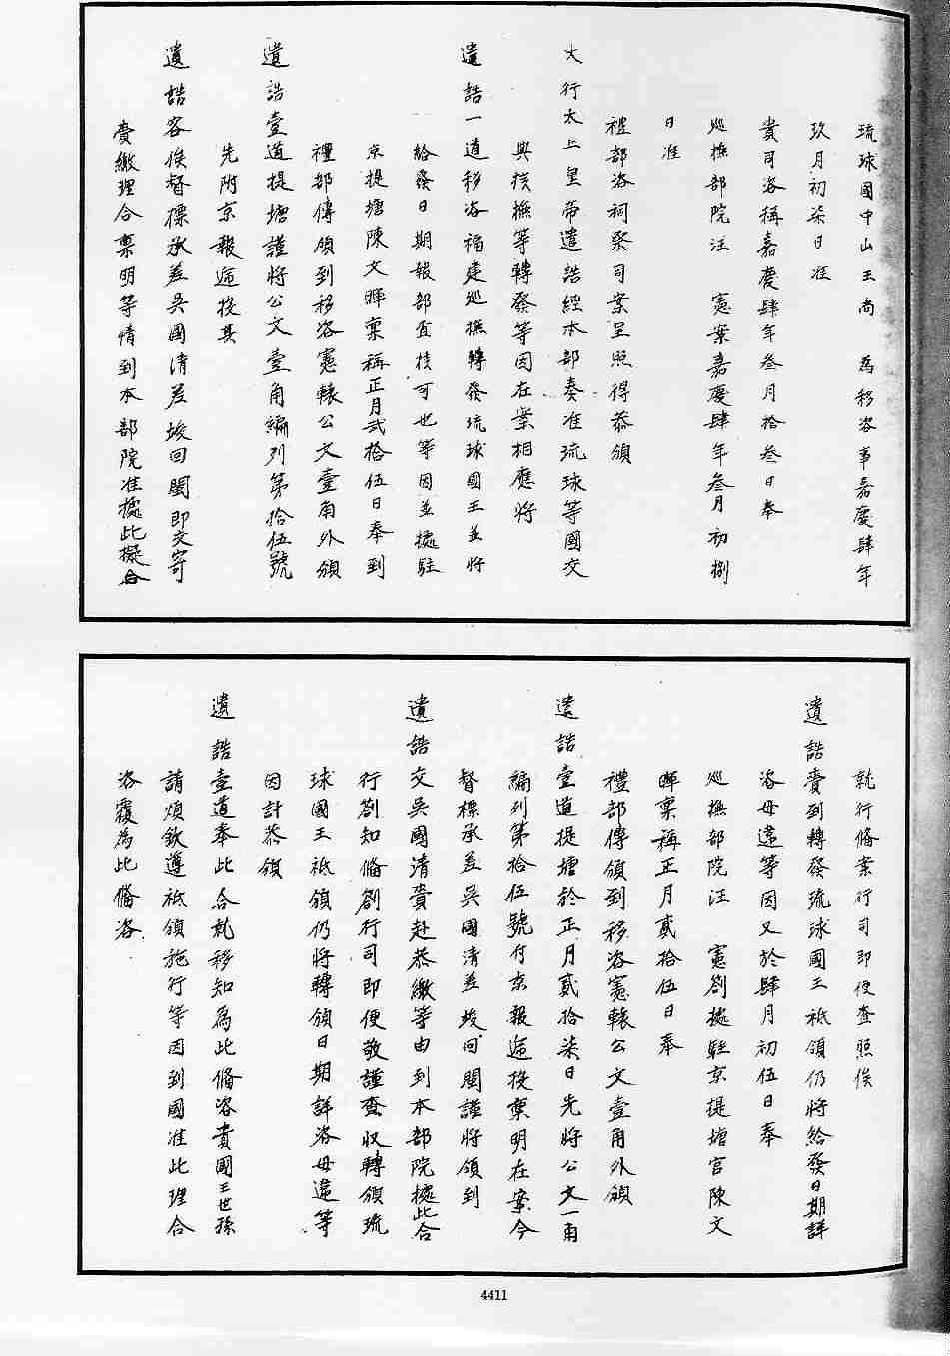 琉球國中山王尚　為移咨事嘉慶肆年
玖月初柒日准
貴司咨稱嘉慶肆年叁月拾叁日奉
巡撫部院汪　憲案嘉慶肆年叁月初捌
日准
禮部咨祠祭司案呈照得恭頒
大行太上皇帝遺誥經本部奏准琉球等國交
與該撫等轉發等因在案相應將
遺誥一道移咨福建巡撫轉發琉球國王並將
給發日期報部查核可也等因並據駐
京提塘陳文暉稟稱正月貳拾伍日奉到
禮部傳領到移咨憲轅公文壹角外頒
遺誥壹道提塘謹將公文壹角編列第拾伍號
先附京報遞投其
遺誥容俟督標承差吳國清差竣回閩即交寄
賫繳理合稟明等情到本部院准據此擬合
就行備案行司即便查照俟
遺誥賫到轉發琉球國王祗領仍將給發日期詳
咨毋違等因又於肆月初伍日奉
巡撫部院汪　憲劄據駐京提塘官陳文
暉稟稱正月貳拾伍日奉
禮部傳領到移咨憲轅公文壹角外頒
遺誥壹道提塘於正月貳拾柒日先將公文一角
編列第拾伍號付京報遞投稟明在案今
督標承差吳國清差竣回閩謹將領到
遺誥交吳國清賫赴恭繳等由到本部院據此合
行劄知備劄行司即便敬謹查收轉頒琉
球國王祗領仍將轉頒日期詳咨毋違等
因計恭頒
遺誥壹道奉此合就移知為此備咨貴國王世孫
請煩欽遵祗領施行等因到國准此理合
咨覆為此備咨
4411